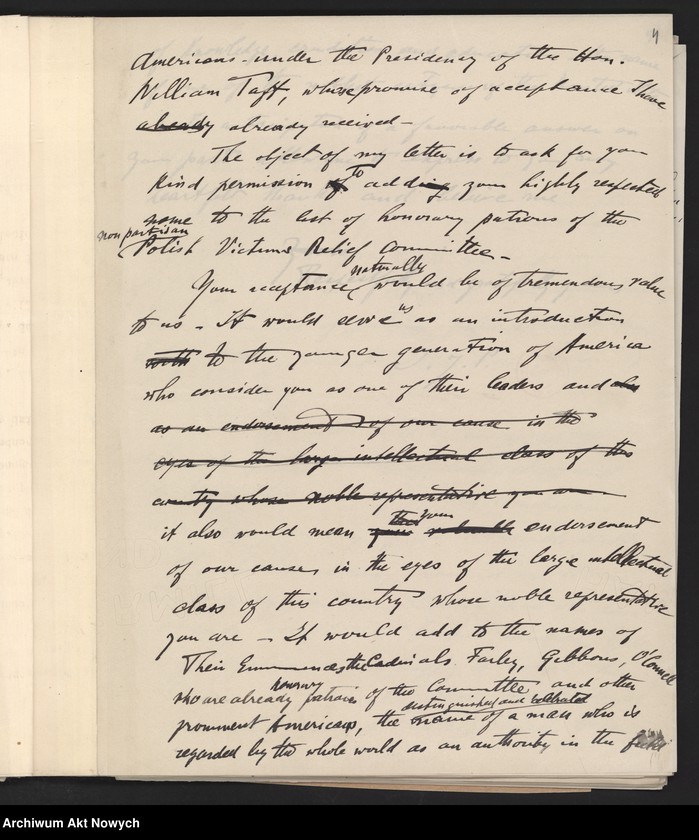 4
Americans - under the Presidency of the Hon.
William Taft, whose promise of acceptance I have
already already received -
The object of my letter is to ask for your
kind permission of to adding your highly respected
name to the list of honorary patrons of the
non partisan
Polish Victims Relief Committee. -
naturally
Your acceptance would be of tremendous value
to us - It would serve us as an introduction
with to the younger generation of America
who consider you as one of their leaders and also
as an endorsement of our cause in the
eyes of the large intellectual class of this
country whose noble representative you are
the your
it also would mean your valuable endorsement
of our cause, in the eyes of the large intellectual
class of this country whose noble representative
you are - It would add to the names of
Their Eminences the Cardinals Farley, Gibbons, O'Connell
honorary
who are already patrons of the Committee, and other
distinguished and celebrated
prominent Americans, the name of a man who is
regarded by the whole world as an authority in the
Archiwum Akt Nowych